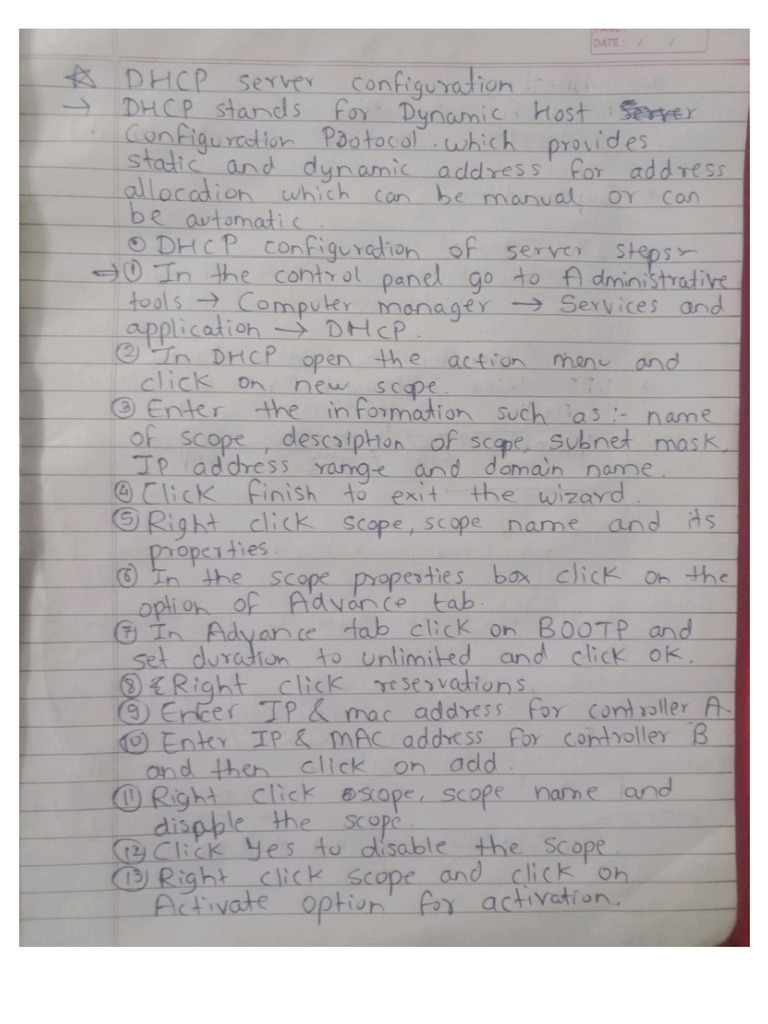 DATE: / /
☆ DHCP server configuration
→ DHCP stands for Dynamic Host
Configuration Protocol. which provides
static and dynamic address for address
allocation which can be manual or can
be automatic.
⊙ DHCP configuration of server steps:-
→ ① In the control panel go to Administrative
tools → Computer manager → Services and
application → DHCP.
② In DHCP open the action menu and
click on new scope.
③ Enter the information such as :- name
of scope, description of scope, subnet mask,
IP address range and domain name.
④ Click finish to exit the wizard.
⑤ Right click scope, scope name and its
properties.
⑥ In the scope properties box click on the
option of Advance tab.
⑦ In Advance tab click on BOOTP and
set duration to unlimited and click OK.
⑧ Right click reservations.
⑨ Enter IP & mac address for controller A
⑩ Enter IP & MAC address for controller B
and then click on add.
⑪ Right click scope, scope name and
disable the scope.
⑫ Click Yes to disable the scope
⑬ Right click scope and click on
Activate option for activation.